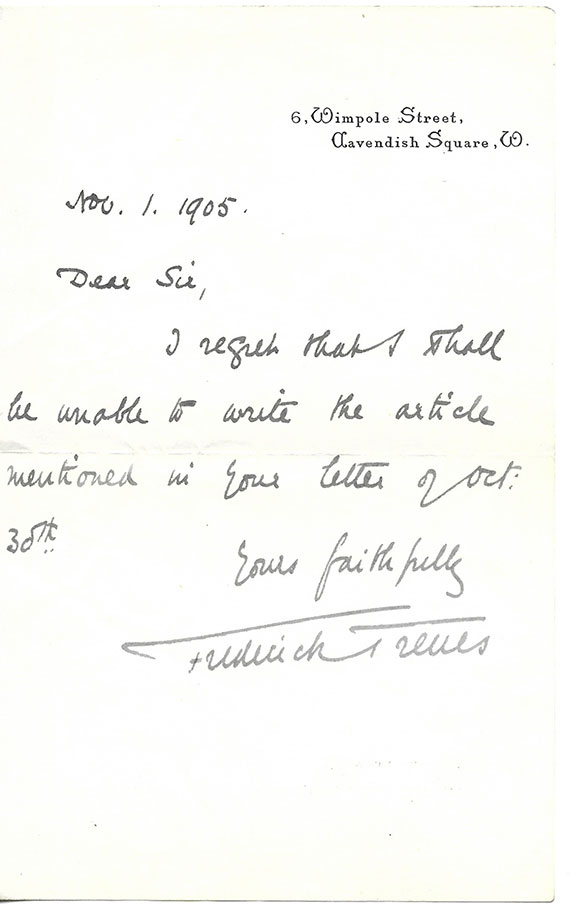 6, Wimpole Street,
Cavendish Square, W.
Nov. 1. 1905.
Dear Sir,
I regret that I shall
be unable to write the article
mentioned in your letter of Oct:
30th
Yours faithfully
Frederick Treves